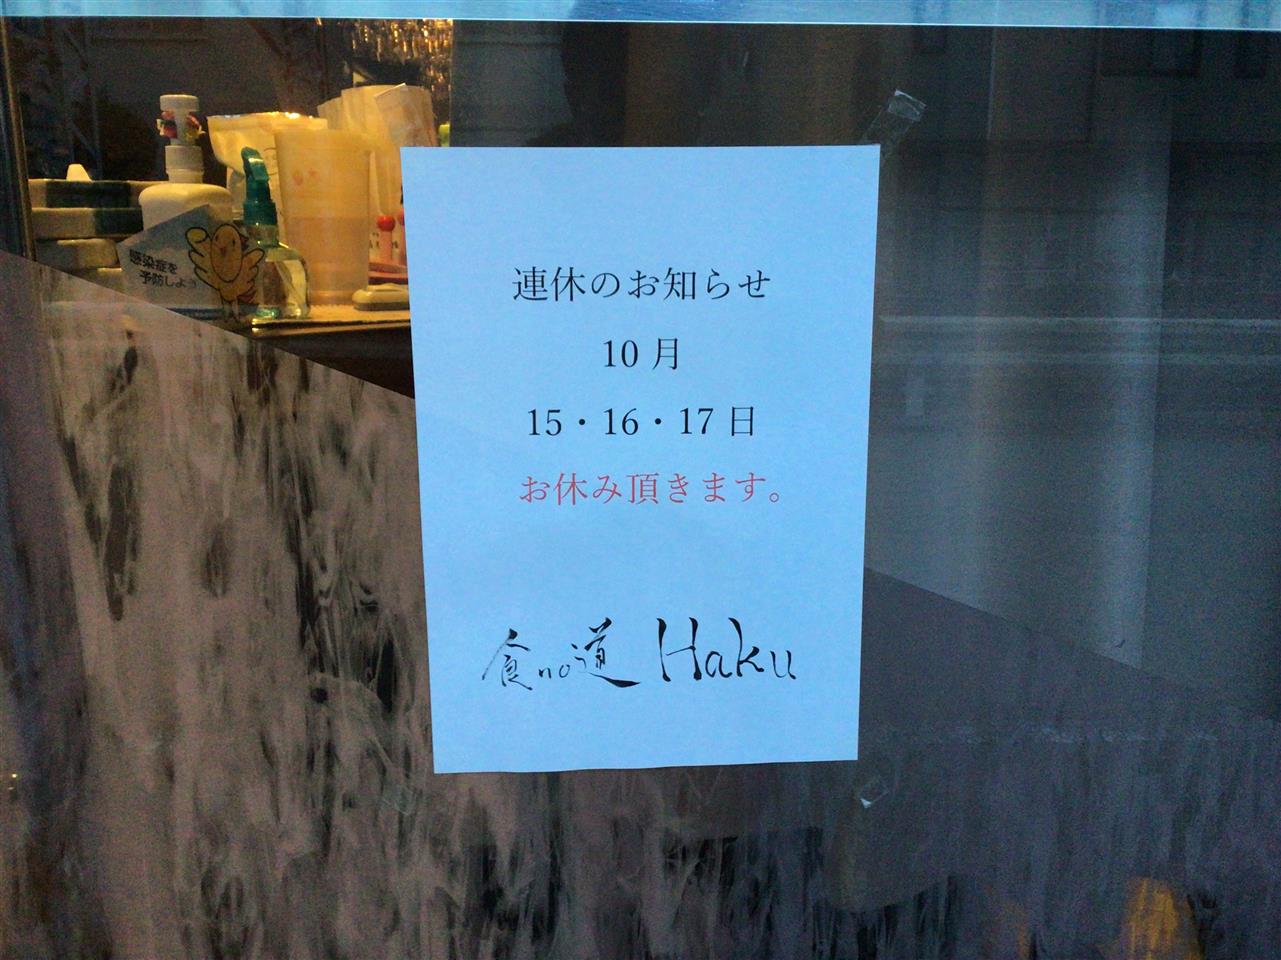 感染症を
予防しよう
連休のお知らせ
10 月
15・16・17 日
お休み頂きます。
食no道 Haku